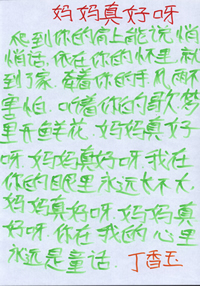 妈妈真好呀
爬到你的肩上能说悄
悄话，依在你的怀里就
到了家，看着你的手，风雨不
害怕，听着你的歌梦
里开鲜花，妈妈真好
呀，妈妈真好呀，我在
你的眼里永远长不大，
妈妈真好呀，妈妈真
好呀，你在我的心里
永远是童话，丁香玉